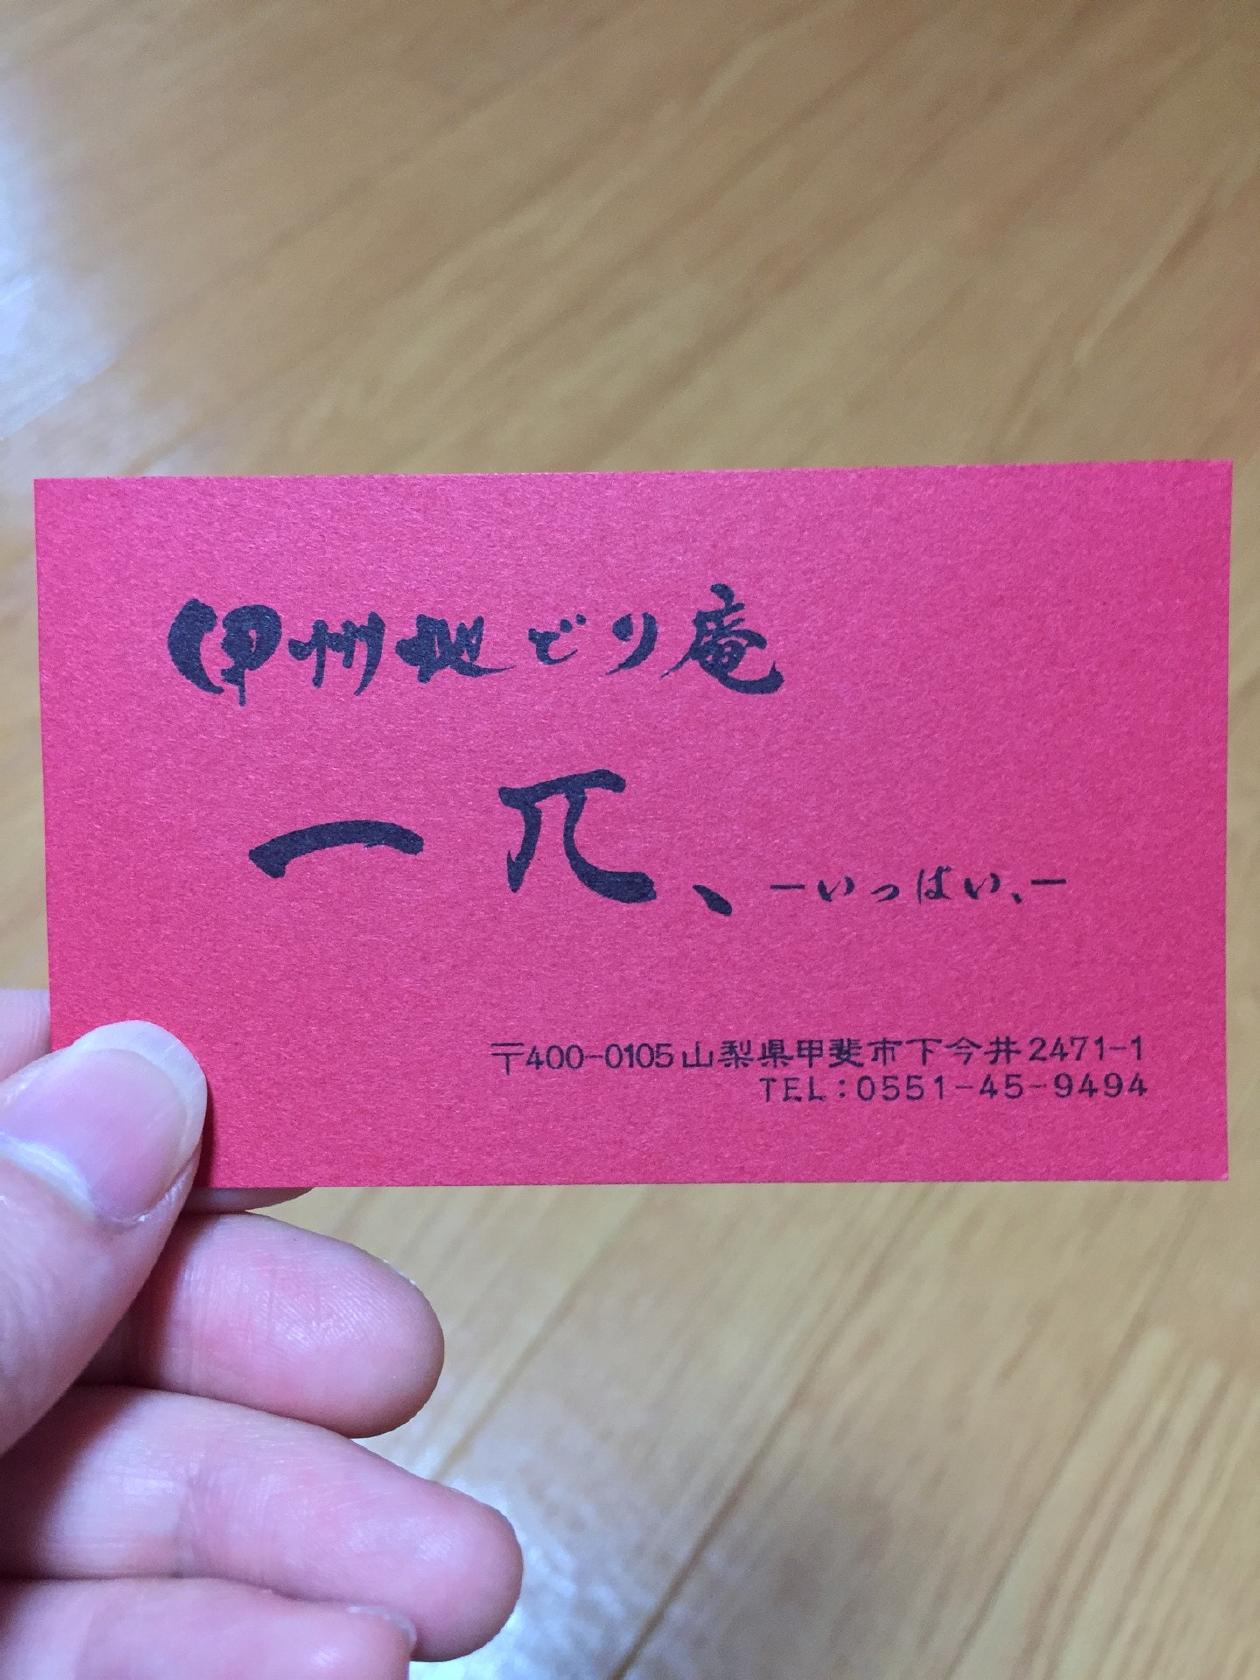 甲州地どり庵
一兀、 ーいっぱい、ー
〒400-0105山梨県甲斐市下今井2471-1
TEL:0551-45-9494